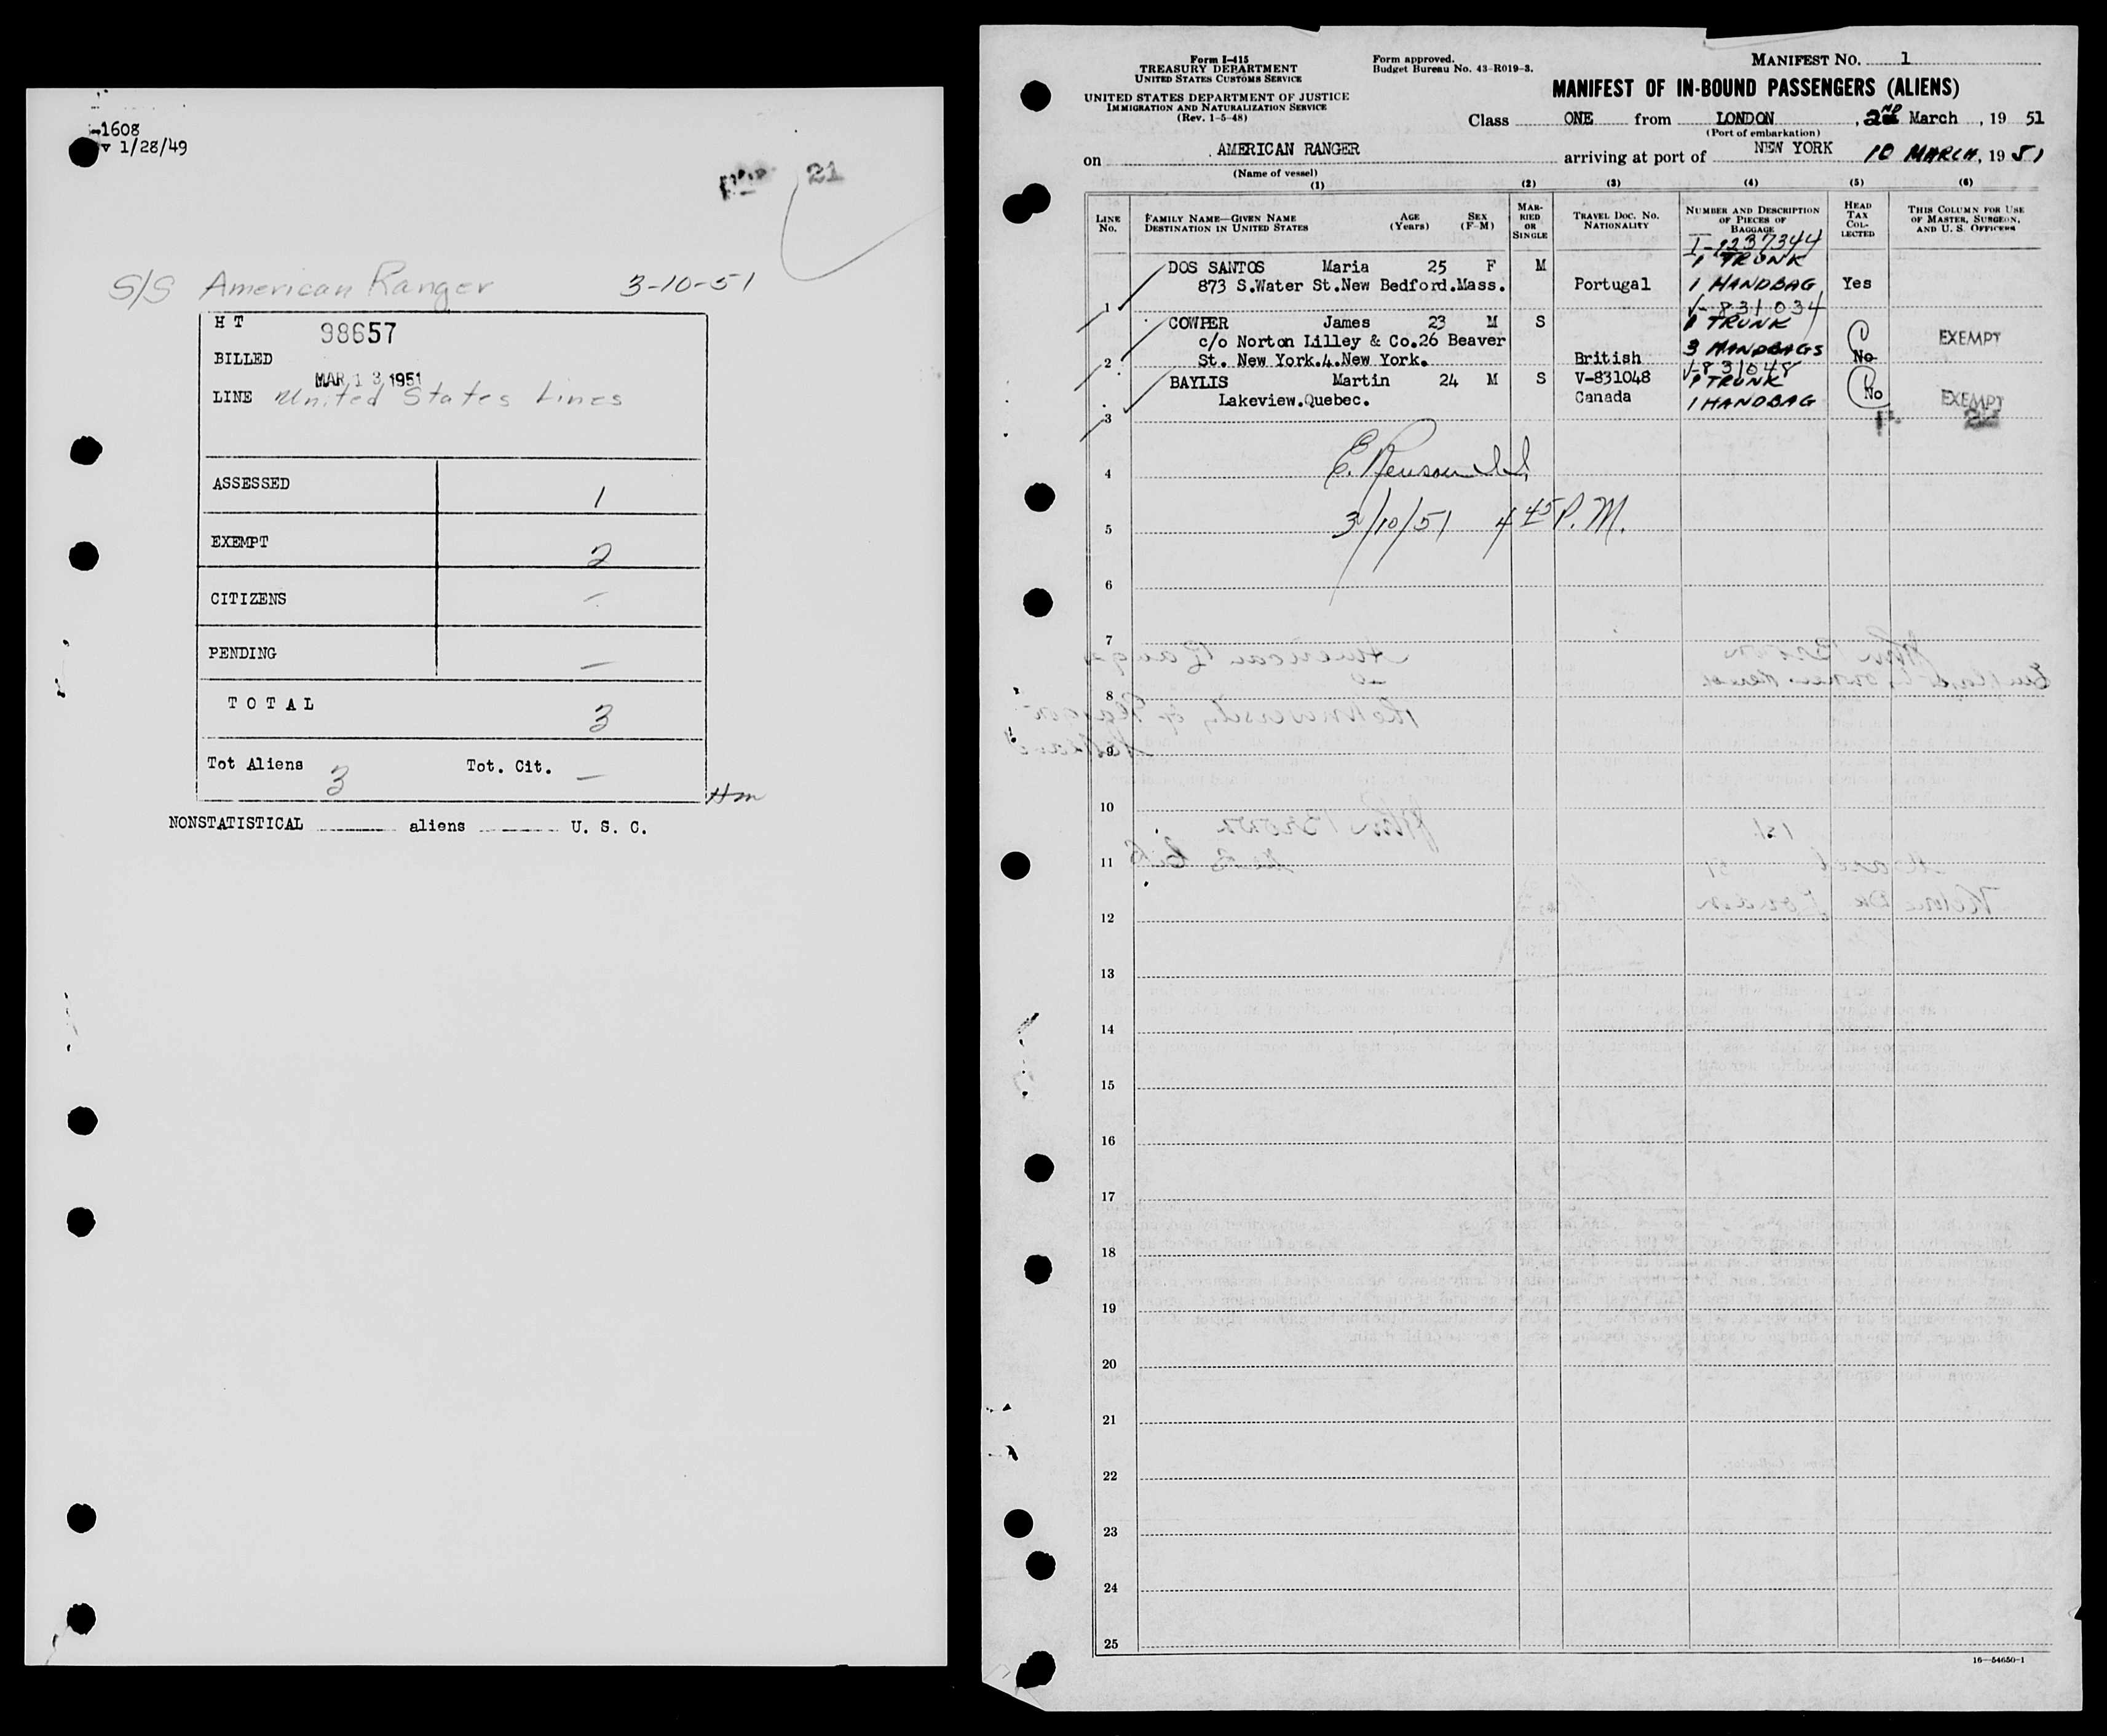 -1608
v 1/28/49
21
S/S American Ranger 3-10-51
H T 98657
BILLED
MAR 13 1951
LINE United States Lines
ASSESSED 1
EXEMPT 2
CITIZENS -
PENDING -
T O T A L 3
Tot Aliens 3 Tot. Cit. -
NONSTATISTICAL aliens U. S. C.
Form I-415
TREASURY DEPARTMENT
UNITED STATES CUSTOMS SERVICE
UNITED STATES DEPARTMENT OF JUSTICE
IMMIGRATION AND NATURALIZATION SERVICE
(Rev. 1-5-48)
Form approved.
Budget Bureau No. 43-R019-3.
MANIFEST NO. 1
MANIFEST OF IN-BOUND PASSENGERS (ALIENS)
Class ONE from LONDON, 2ND March, 19 51
(Port of embarkation)
on AMERICAN RANGER arriving at port of NEW YORK 10 MARCH, 19 51
(Name of vessel)
(1) (2) (3) (4) (5) (6)
LINE No.
FAMILY NAME—GIVEN NAME
DESTINATION IN UNITED STATES
AGE (Years)
SEX (F-M)
MARRIED OR SINGLE
TRAVEL DOC. NO.
NATIONALITY
NUMBER AND DESCRIPTION OF PIECES OF BAGGAGE
HEAD TAX COLLECTED
THIS COLUMN FOR USE OF MASTER, SURGEON, AND U. S. OFFICERS
I-1237344
DOS SANTOS Maria 25 F M 1 TRUNK
873 S.Water St.New Bedford.Mass. Portugal 1 HANDBAG Yes
1
V-831034
COWPER James 23 M S 1 TRUNK
c/o Norton Lilley & Co.26 Beaver 3 HANDBAGS EXEMPT
St. New York.4.New York. British No
2
V-831048
BAYLIS Martin 24 M S V-831048 1 TRUNK
Lakeview.Quebec. Canada 1 HANDBAG No EXEMPT
3
4
3/10/51 4 45 P.M.
5
6
7
8
9
10
11
12
13
14
15
16
17
18
19
20
21
22
23
24
25
16—54650-1